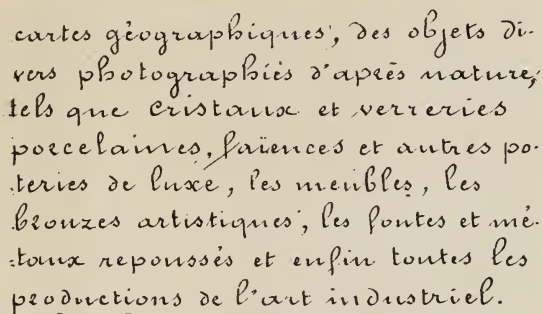 cartes géographiques, des objets di-
vers photographiés d'après nature,
tels que cristaux et verreries
porcelaines, faïences et autres po-
teries de luxe, les meubles, les
bronzes artistiques, les fontes et mé-
taux repoussés et enfin toutes les
productions de l'art industriel.